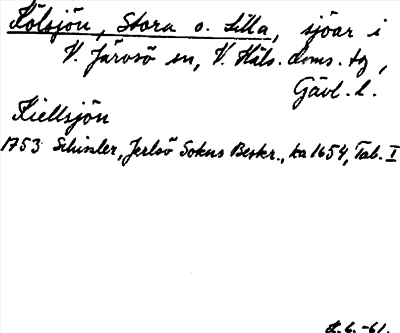 Kölsjön, Stora o. Lilla, sjöar i
V. Järvsö sn, V. Häls. doms. tg,
Gävl. l.
Kiellsjön
1753 Schissler, Jerlsö Sokns Beskr., ka 1654, Tab. I
L. G. -61.